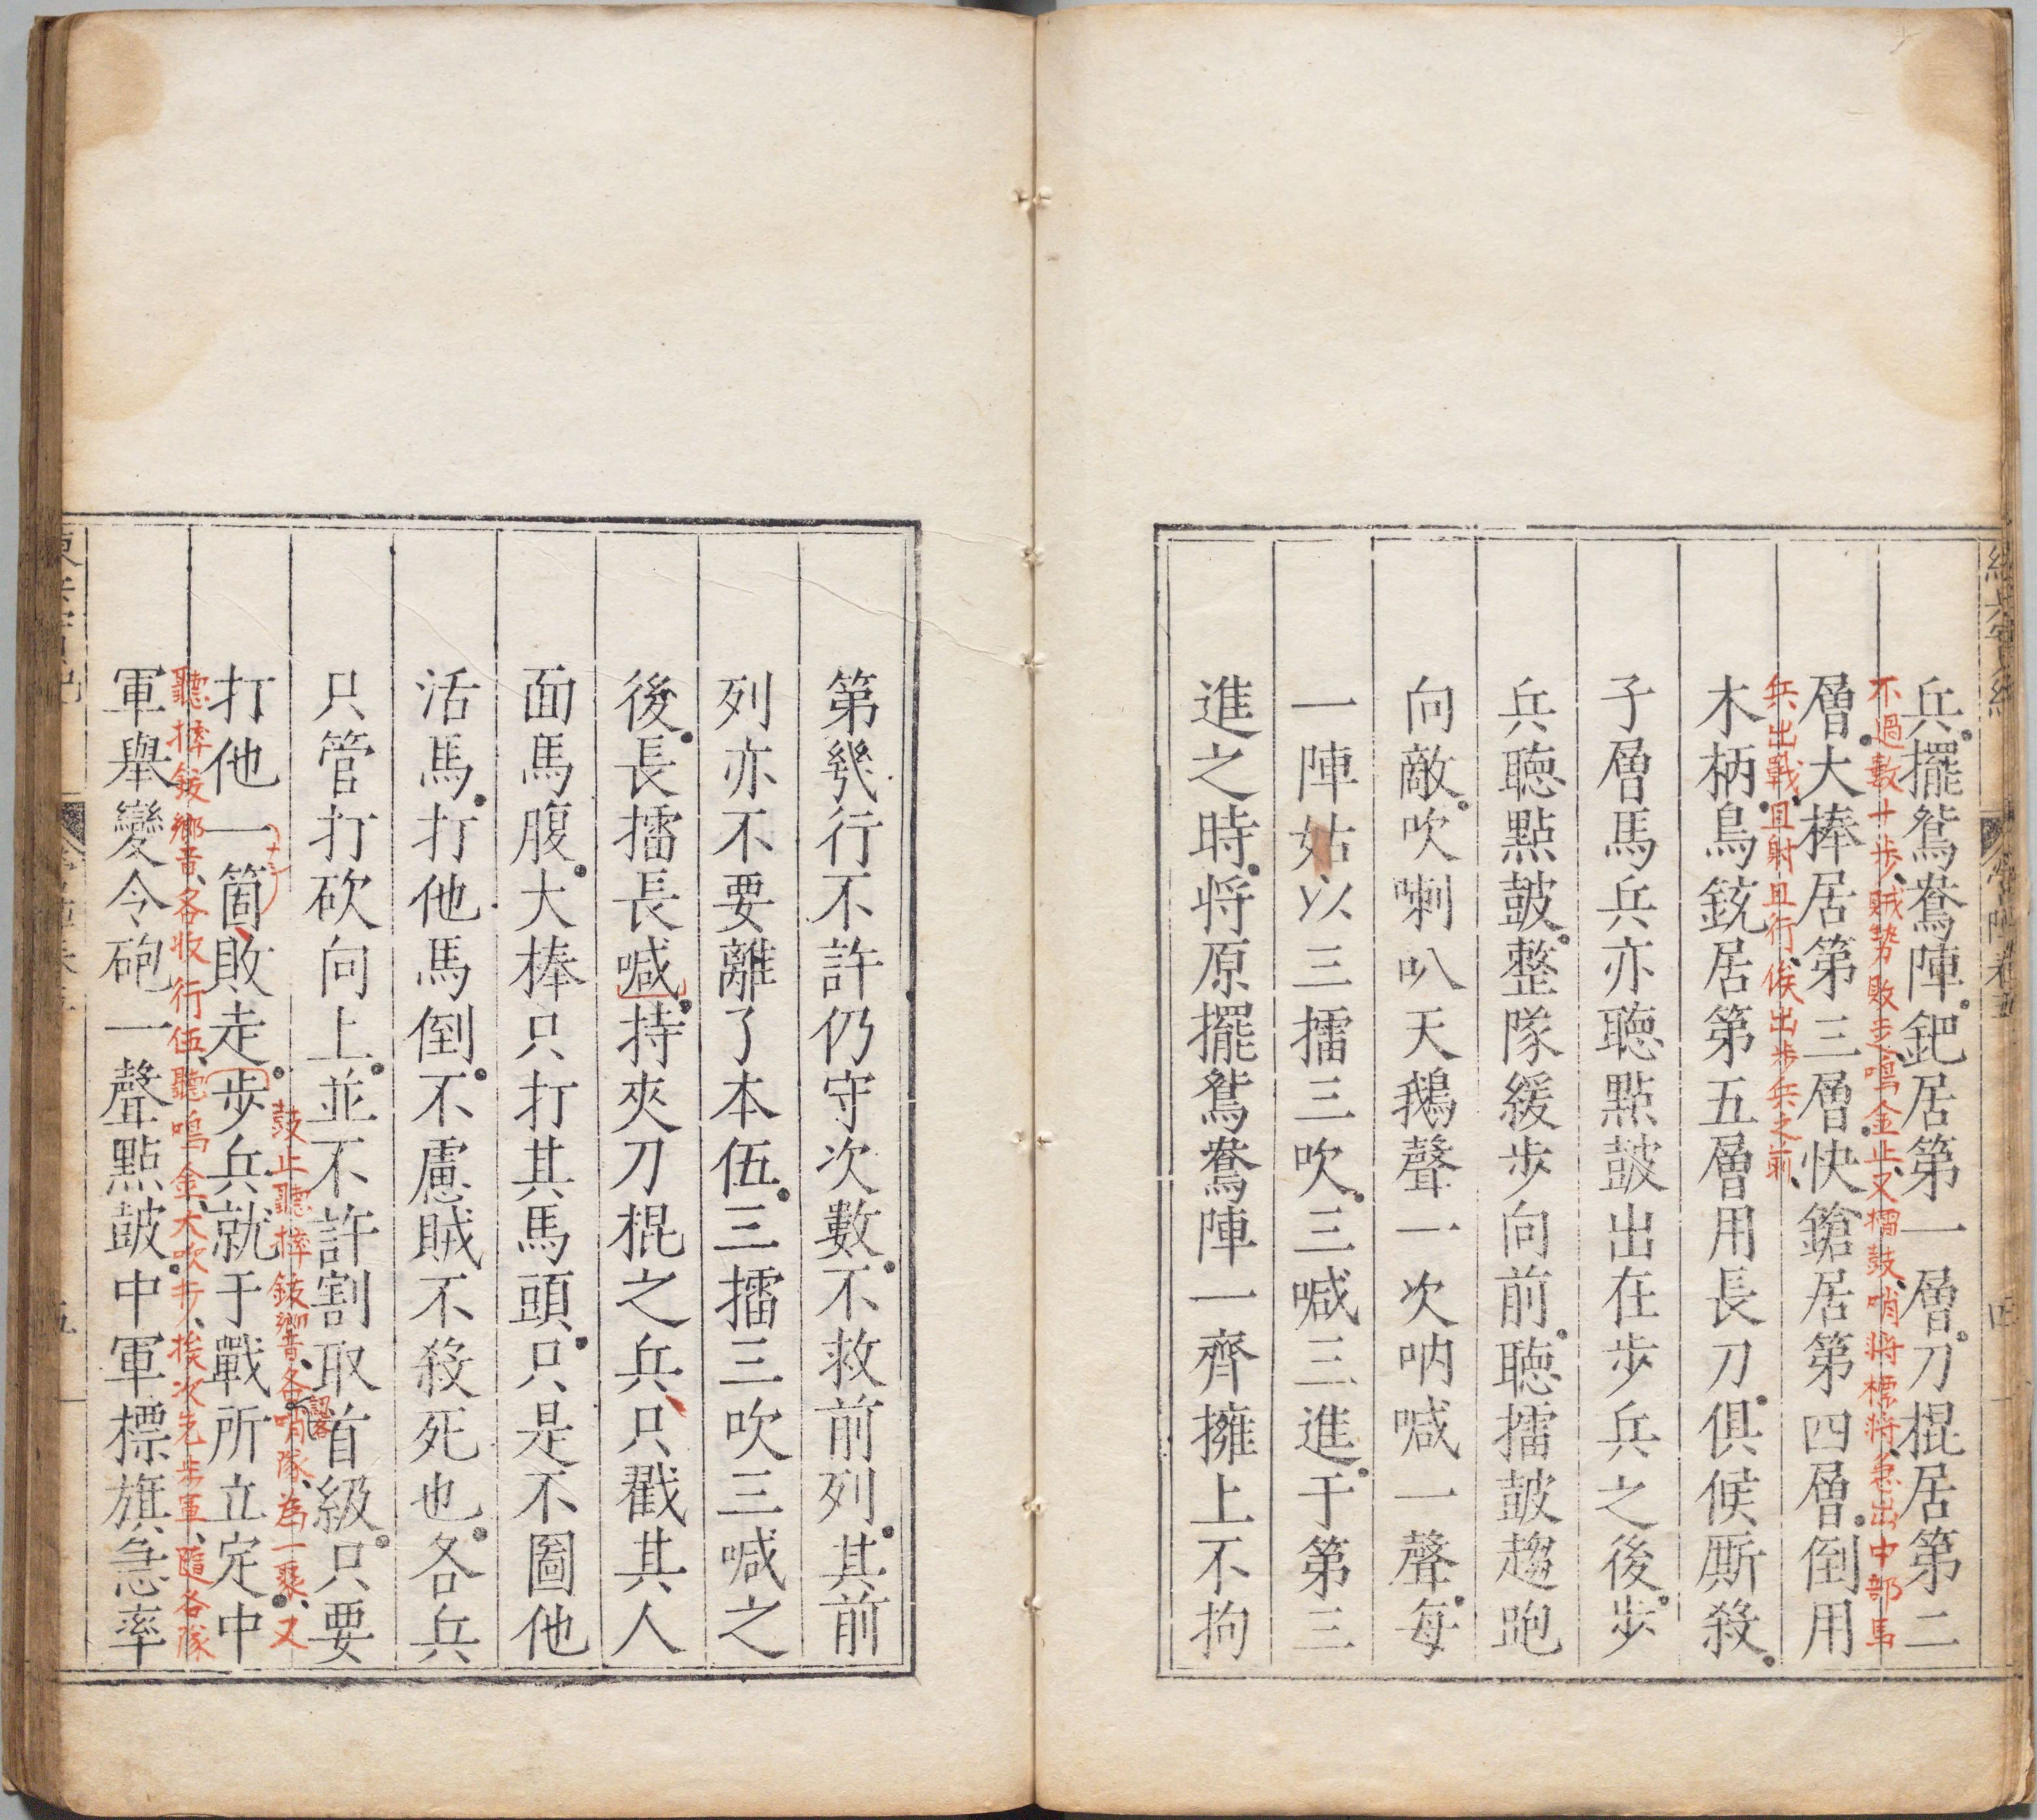 兵擺鴛鴦陣鈀居第一層刀棍居第二
不過數十步賊勢敗走鳴金止又擂鼓哨將標將急出中部馬
層大棒居第三層快鎗居第四層倒用
兵出戰且射且行俟出步兵之前
木柄鳥銃居第五層用長刀俱候厮殺
子層馬兵亦聴點皷出在步兵之後步
兵聴點皷整隊緩步向前聴擂皷趨跑
向敵吹喇叭天鵝聲一次吶喊一聲每
一陣姑以三擂三吹三喊三進于第三
進之時将原擺鴛鴦陣一齊擁上不拘
第幾行不許仍守次數不救前列其前
列亦不要離了本伍三擂三吹三喊之
後長擂長喊持夾刀棍之兵只戳其人
面馬腹大棒只打其馬頭只是不圖他
活馬打他馬倒不慮賊不殺死也各兵
只管打砍向上並不許割取首級只要
鼓止聽摔鈸響音各哨隊為一聚又
打他一箇敗走步兵就于戰所立定中
聽摔鈸響音各收行伍聽鳴金大吹打挨次先步軍隨各隊
軍舉變令砲一聲點皷中軍標旗急率